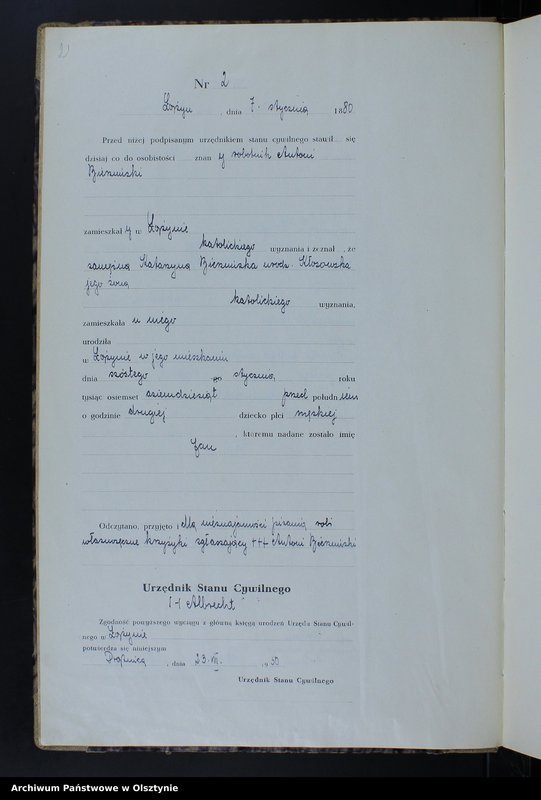 Nr 2
Łążyn , dnia 7. stycznia 1880
Przed niżej podpisanym urzędnikiem stanu cywilnego stawił się
dzisiaj co do osobistości znany robotnik Antoni
zamieszkały w Łążynie
katolickiego wyznania i zeznał , że
zamężna Katarzyna urodz. Kłosowska
jego żona
katolickiego wyznania,
zamieszkała u niego
urodziła
w Łążynie w jego mieszkaniu
dnia szóstego go stycznia, roku
tysiąc osiemset osiemdziesiąt przed południem
o godzinie drugiej dziecko płci męskiej
, któremu nadane zostało imię
Jan
Odczytano, przyjęto i dla nieznajomości pisania robi
własnoręczne krzyżyki zgłaszający +++ Antoni
Urzędnik Stanu Cywilnego
(-) Albrecht
Zgodność powyższego wyciągu z główną księgą urodzeń Urzędu Stanu Cywil-
nego w Łążynie
potwierdza się niniejszym
, dnia 23. VII. 1930
Urzędnik Stanu Cywilnego
Archiwum Państwowe w Olsztynie